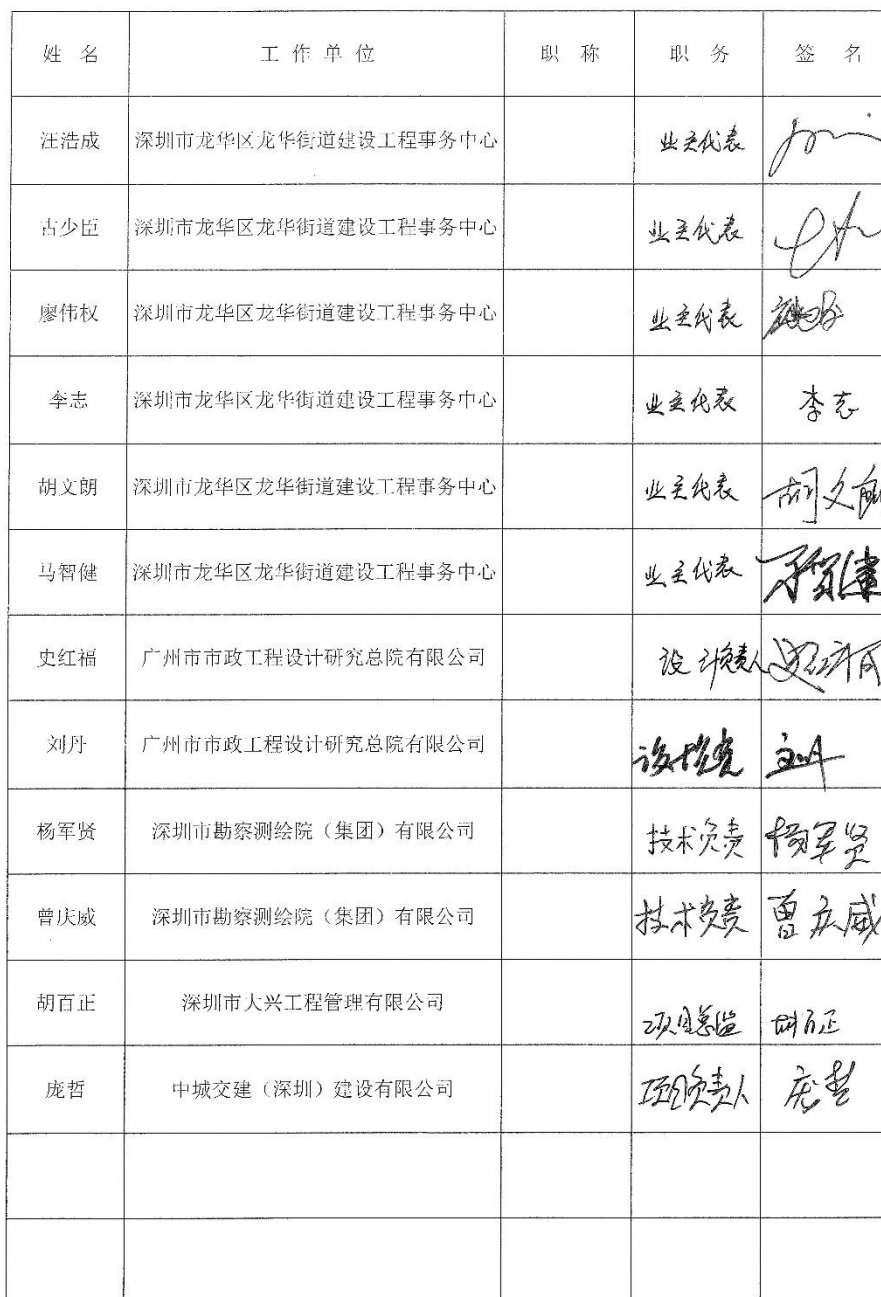 姓名 工作单位 职称 职务 签名
汪浩成 深圳市龙华区龙华街道建设工程事务中心 业主代表
古少臣 深圳市龙华区龙华街道建设工程事务中心 业主代表
廖伟权 深圳市龙华区龙华街道建设工程事务中心 业主代表
李志 深圳市龙华区龙华街道建设工程事务中心 业主代表 李志
胡文朗 深圳市龙华区龙华街道建设工程事务中心 业主代表 胡文朗
马智健 深圳市龙华区龙华街道建设工程事务中心 业主代表 马智健
史红福 广州市市政工程设计研究总院有限公司 设计负责人 史红福
刘丹 广州市市政工程设计研究总院有限公司 刘丹
杨军贤 深圳市勘察测绘院（集团）有限公司 技术负责 杨军贤
曾庆威 深圳市勘察测绘院（集团）有限公司 技术负责 曾庆威
胡百正 深圳市大兴工程管理有限公司 项目总监 胡百正
庞哲 中城交建（深圳）建设有限公司 项目负责人 庞哲